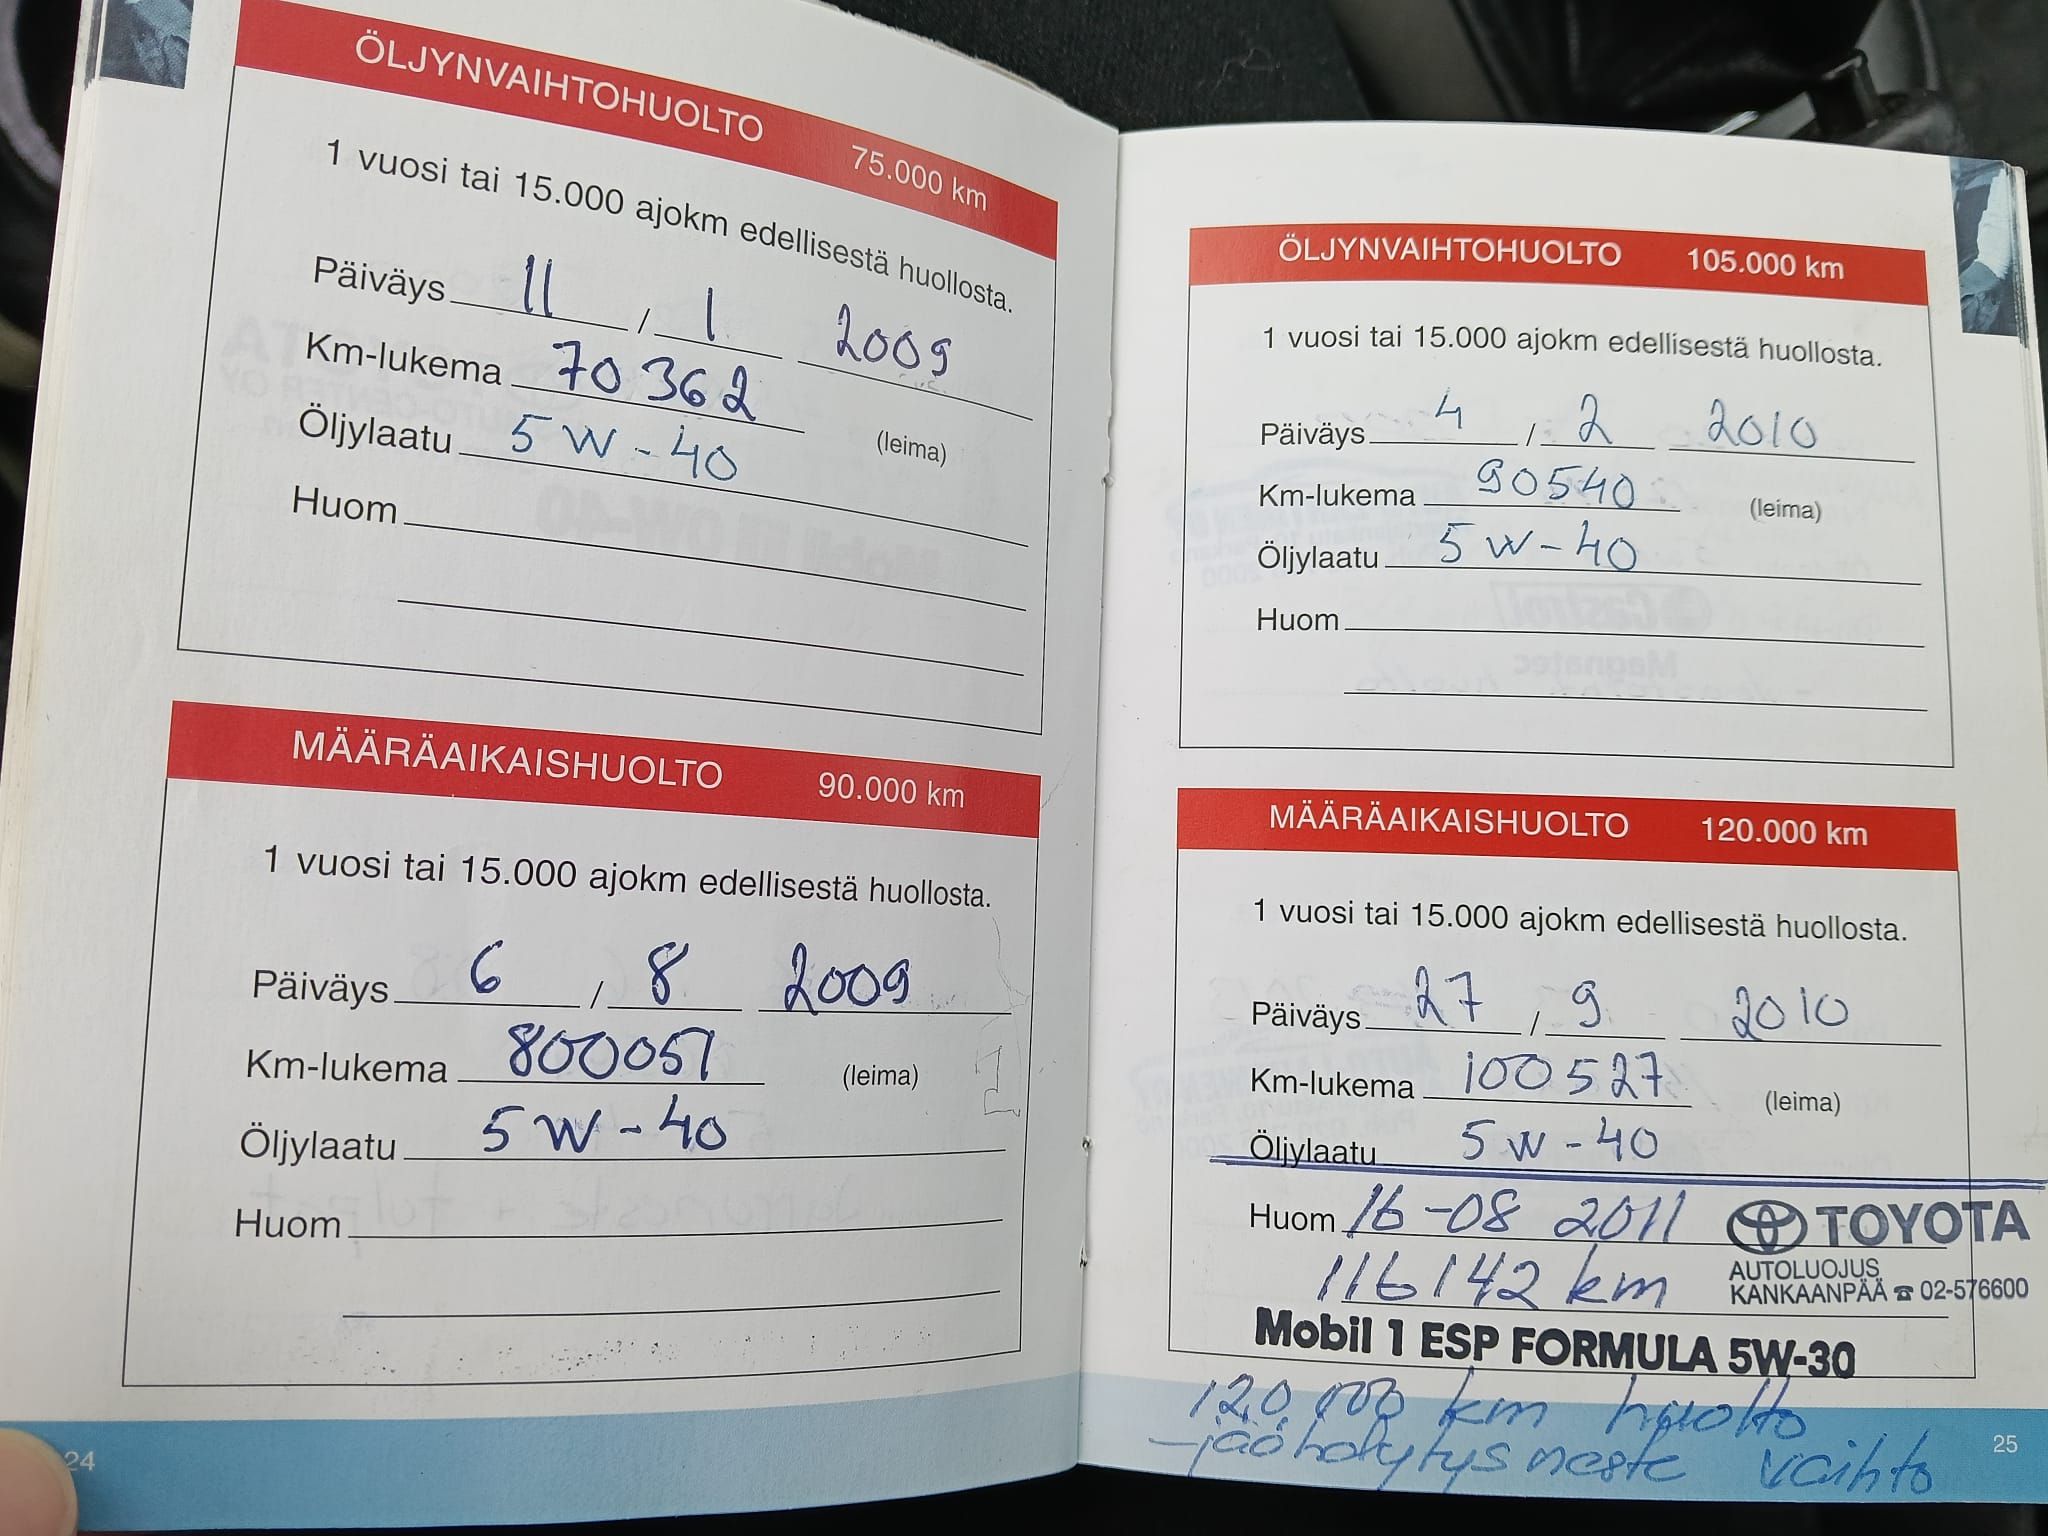 ÖLJYNVAIHTOHUOLTO 75.000 km
1 vuosi tai 15.000 ajokm edellisestä huollosta.
Päiväys 11 / 1 2009
Km-lukema 70 362
Öljylaatu 5 W - 40 (leima)
Huom
MÄÄRÄAIKAISHUOLTO 90.000 km
1 vuosi tai 15.000 ajokm edellisestä huollosta.
Päiväys 6 / 8 2009
Km-lukema 800051 (leima)
Öljylaatu 5 W - 40
Huom
24
ÖLJYNVAIHTOHUOLTO 105.000 km
1 vuosi tai 15.000 ajokm edellisestä huollosta.
Päiväys 4 / 2 2010
Km-lukema 90540 (leima)
Öljylaatu 5 W - 40
Huom
MÄÄRÄAIKAISHUOLTO 120.000 km
1 vuosi tai 15.000 ajokm edellisestä huollosta.
Päiväys 27 / 9 2010
Km-lukema 100527 (leima)
Öljylaatu 5 W - 40
Huom 16-08 2011 TOYOTA
AUTOLUOJUS
116142 km KANKAANPÄÄ ☎ 02-576600
Mobil 1 ESP FORMULA 5W-30
120.000 km huolto
-jäähdytysneste vaihto
25